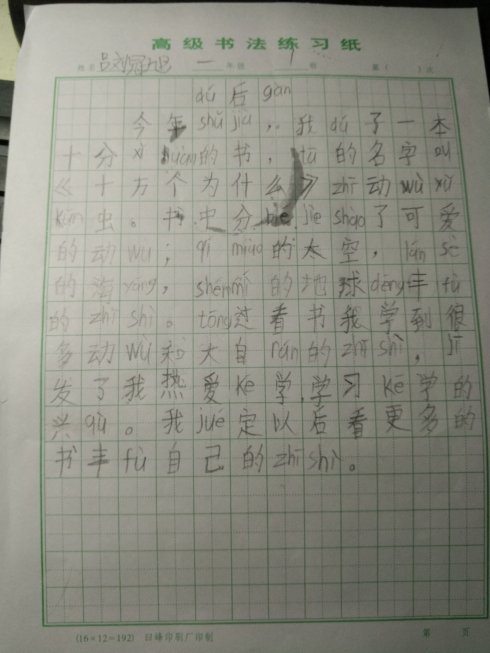 高级书法练习纸
姓名 吕刘冠旭 一 年级 1 班 第( )次
dú 后 gǎn
今年 shǔ jià，我 dú 了一本
十分 xǐ huān 的书，tā 的名字叫
《十万个为什么》 zhī 动 wù xù
kūn 虫。书中分 bié jiè shào 了可爱
的动 wù；qí miào 的太空，lán sè
的海 yáng，shén mì 的地球 děng 丰 fù
的 zhī shi。tōng 过看书我学到很
多动 wù 和大自 rán 的 zhī shi，jī
发了我热爱 kē 学，学习 kē 学的
兴 qù。我 jué 定以后看更多的
书丰 fù 自己的 zhī shi。
(16×12=192) 日峰印刷厂印制 第 页